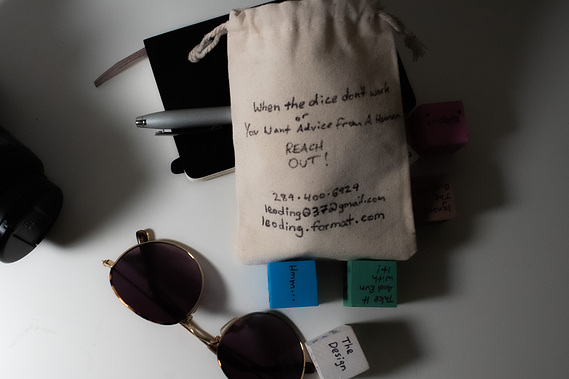 When the dice don't work
or
You Want Advice from A Human
REACH
OUT!
289-400-6929
leoding037@gmail.com
leoding.format.com
Hmm...
Take It
And Run
With
It!
The
Design